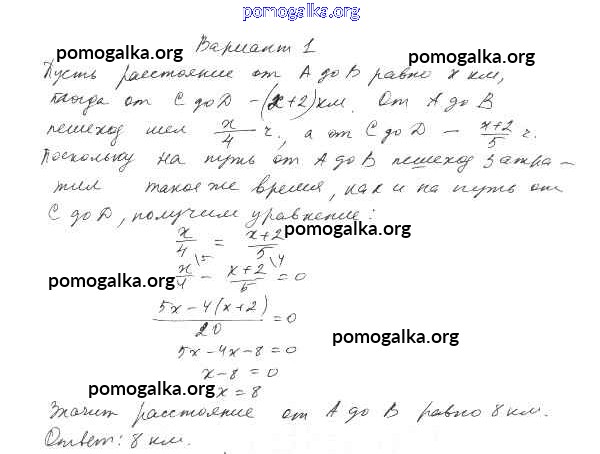 pomogalka.org
Вариант 1
pomogalka.org
pomogalka.org
Пусть расстояние от А до В равно x км,
тогда от С до D – (x+2) км. От А до В
пешеход шел x/4 ч, а от С до D – x+2/5 ч.
Поскольку на путь от А до В пешеход затра-
тил такое же время, как и на путь от
С до D, получим уравнение:
x/4 = x+2/5
pomogalka.org
x/4 \5 – x+2/5 \4 = 0
pomogalka.org
5x – 4(x+2)/20 = 0
pomogalka.org
5x – 4x – 8 = 0
x – 8 = 0
pomogalka.org
x = 8
Значит расстояние от А до В равно 8 км.
Ответ: 8 км.